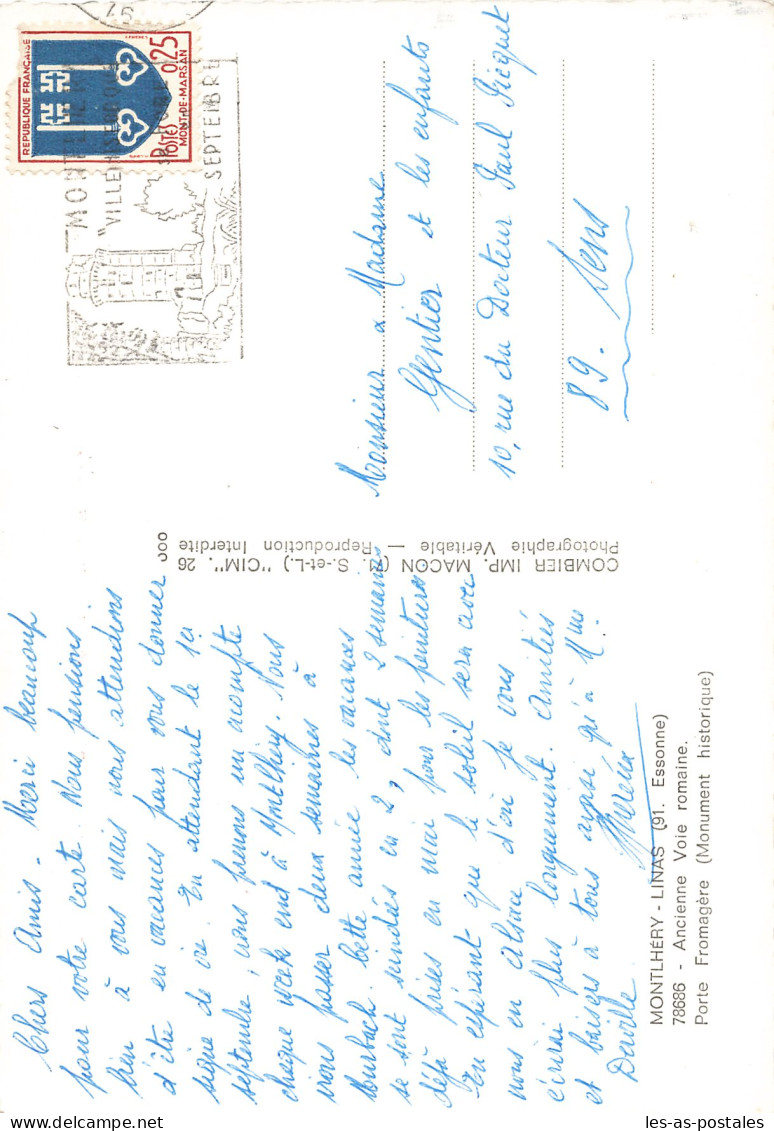 Chers Amis - Merci beaucoup
pour votre carte. Nous pensions
bien à vous mais nous attendions
d'être en vacances pour vous donner
signe de vie. En attendant le 1er
septembre, nous prenons un acompte
chaque week end à Montlhéry. Nous
irons passer deux semaines à
Mourbach. Cette année les vacances
se sont scindées en 2, dont 2 semaines
déjà prises en mai pour les peintures
En espérant que le soleil sera avec
nous en Alsace d'où je vous
écrirai plus longuement. Amitiés
et baisers à tous ainsi qu'à Mme
Deville
MONTLHÉRY - LINAS (91. Essonne)
78686 - Ancienne Voie romaine.
Porte Fromagère (Monument historique)
COMBIER IMP. MACON (71. S.-et-L.) "CIM". 26
Photographie Véritable — Reproduction Interdite
REPUBLIQUE FRANÇAISE
POSTES
0,25
MONT-DE-MARSAN
45
"VILLE
SEPTEMBRE
Monsieur & Madame
Gentier et les enfants
10, rue du Docteur Paul Picquet
89. Sens
les-as-postales